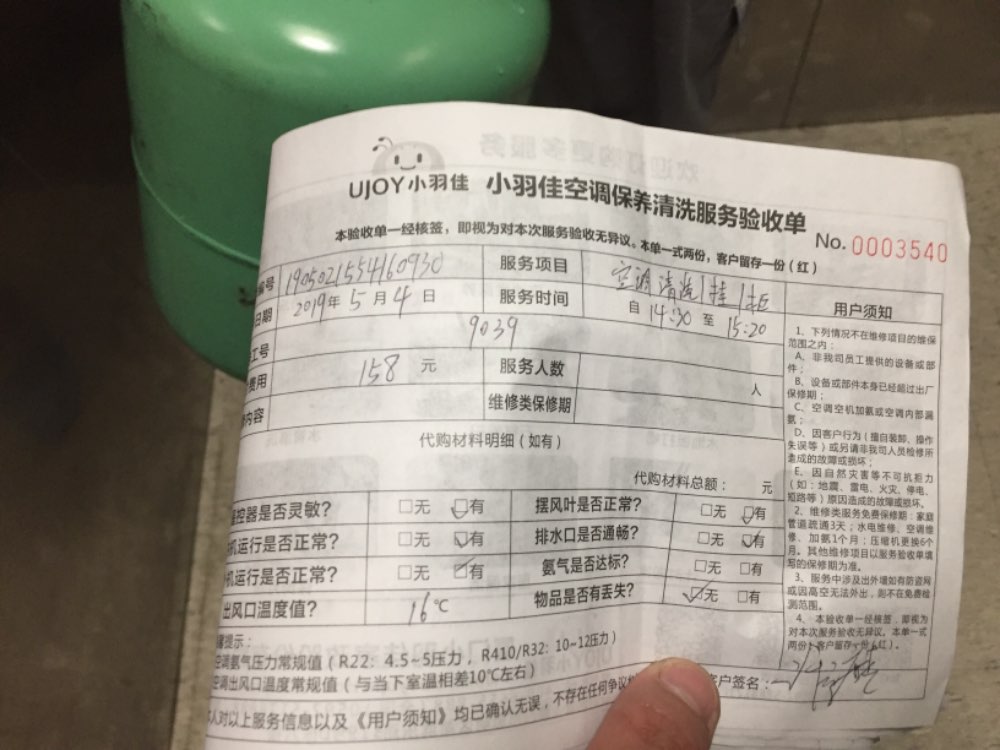 UJOY小羽佳 小羽佳空调保养清洗服务验收单
No. 0003540
本验收单一经核签，即视为对本次服务验收无异议。本单一式两份，客户留存一份（红）
编号 1905021554160930 服务项目 空调清洗1挂1柜
日期 2019年5月4日 服务时间 自 14:30 至 15:20
工号 9039
费用 158 元 服务人数 人
内容 维修类保修期
代购材料明细（如有）
代购材料总额： 元
控器是否灵敏？ □无 □有 摆风叶是否正常？ □无 □有
机运行是否正常？ □无 □有 排水口是否通畅？ □无 □有
机运行是否正常？ □无 □有 氨气是否达标？ □无 □有
出风口温度值？ 16℃ 物品是否有丢失？ □无 □有
提示：
空调氨气压力常规值（R22：4.5~5压力，R410/R32：10~12压力）
空调出风口温度常规值（与当下室温相差10℃左右）
本人对以上服务信息以及《用户须知》均已确认无误，不存在任何争议
客户签名：
用户须知
1、下列情况不在维修项目的维保
范围之内：
A、非我司员工提供的设备或部
件；
B、设备或部件本身已经超过出厂
保修期；
C、空调空机加氨或空调内部漏
氨；
D、因客户行为（擅自装卸、操作
失误等）或另请非我司人员检修所
造成的故障或损坏；
E、因自然灾害等不可抗拒力
（如：地震、雷电、火灾、停电、
短路等）原因造成的故障或损坏。
2、维修类服务免费保修期：家庭
管道疏通3天；水电维修、空调维
修、加氨1个月；压缩机更换6个
月。其他维修项目以服务验收单填
写的保修期为准。
3、服务中涉及出外墙如有防盗网
或因高空无法外出，则不在免费检
测范围。
4、本验收单一经核签，即视为
对本次服务验收无异议。本单一式
两份，客户留存一份（红）。